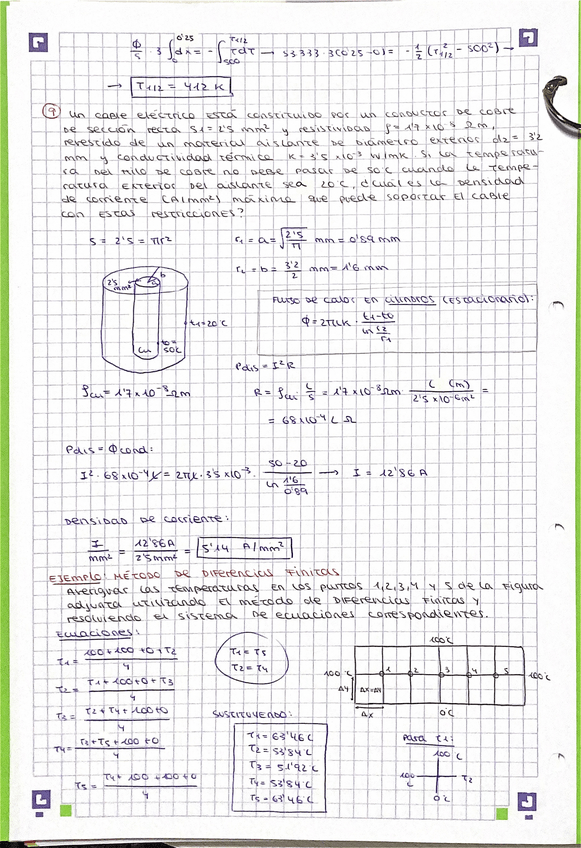 Φ/S · 3 ∫₀^0'25 dx = - ∫₅₀₀^T1/2 TdT → 53333·3(0'25-0) = -1/2 (T²1/2 - 500²) →
→ T1/2 = 412 K
⑨ Un cable eléctrico está constituido por un conductor de cobre
de sección recta S1 = 2'5 mm² y resistividad ρ = 1'7 x10⁻⁸ Ωm,
revestido de un material aislante de diámetro exterior d2 = 3'2
mm y conductividad térmica K = 3'5 x10⁻³ W/mK. Si la temperatu-
ra del hilo de cobre no debe pasar de 50 C cuando la tempe-
ratura exterior del aislante sea 20 C, ¿cuál es la densidad
de corriente (A/mm²) máxima que puede soportar el cable
con estas restricciones?
S = 2'5 = πr²
r1 = a = √(2'5/π) mm = 0'89 mm
r2 = b = 3'2/2 mm = 1'6 mm
2'5 mm²
b
t1=20C
t0= 50C
Cu
Flujo de calor en cilindros (estacionario):
Φ = 2πLK · (t1-t0)/(ln r2/r1)
Pdis = I²R
ρCu = 1'7 x10⁻⁸ Ωm
R = ρCu · L/S = 1'7 x10⁻⁸ Ωm · L (m)/2'5 x10⁻⁶ m² =
= 68 x10⁻⁴ L Ω
Pdis = Φcond:
I² · 68 x10⁻⁴ L = 2πL · 3'5 x10⁻³ · (50-20)/(ln 1'6/0'89) → I = 12'86 A
Densidad de corriente:
I/mm² = 12'86A/2'5mm² = 5'14 A/mm²
Ejemplo: método de diferencias finitas
Averiguar las temperaturas en los puntos 1,2,3,4 y 5 de la figura
adjunta utilizando el método de diferencias finitas y
resolviendo el sistema de ecuaciones correspondientes.
Ecuaciones:
T1 = (100+100+0+T2)/4
T2 = (T1+100+0+T3)/4
T3 = (T2+T4+100+0)/4
T4 = (T3+T5+100+0)/4
T5 = (T4+100+100+0)/4
T1 = T5
T2 = T4
Sustituyendo:
T1 = 63'46 C
T2 = 53'84 C
T3 = 51'92 C
T4 = 53'84 C
T5 = 63'46 C
100C
100 C
1 2 3 4 5
100C
Δy
Δx=Δy
Δx
0C
Para T1:
100 C
100 C
T2
0C